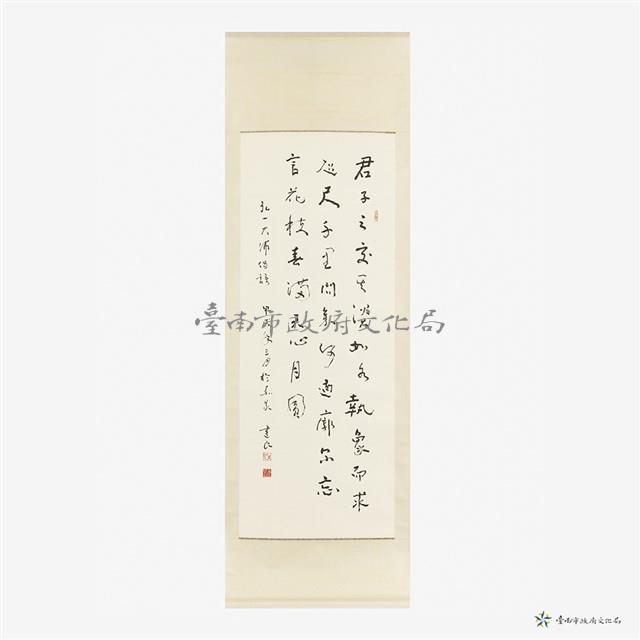 君子之交其淡如水執象而求
咫尺千里問余何適廓爾忘
言花枝春滿天心月圓
弘一大師偈語
臺南市政府文化局
臺南市政府文化局